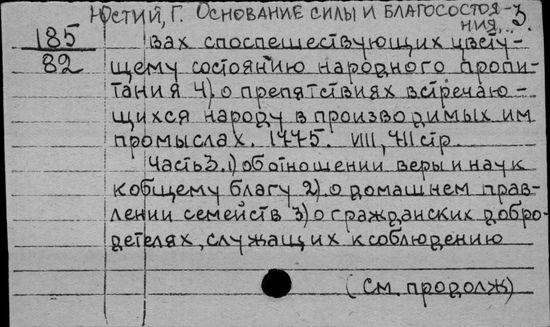 Юстий, Г. Основание силы и благосостоя-
ния... 3.
185
82
вах споспешествующих цвету-
щему состоянию народного пропи-
тания 4) о препятствиях встречаю-
щихся народу в производимых им
промыслах. 1775. VIII, 711 стр.
Часть 3. 1) об отношении веры и наук
к общему благу 2). о домашнем прав-
лении семейств 3) о гражданских добро-
детелях, служащих к соблюдению
(См. продолж)